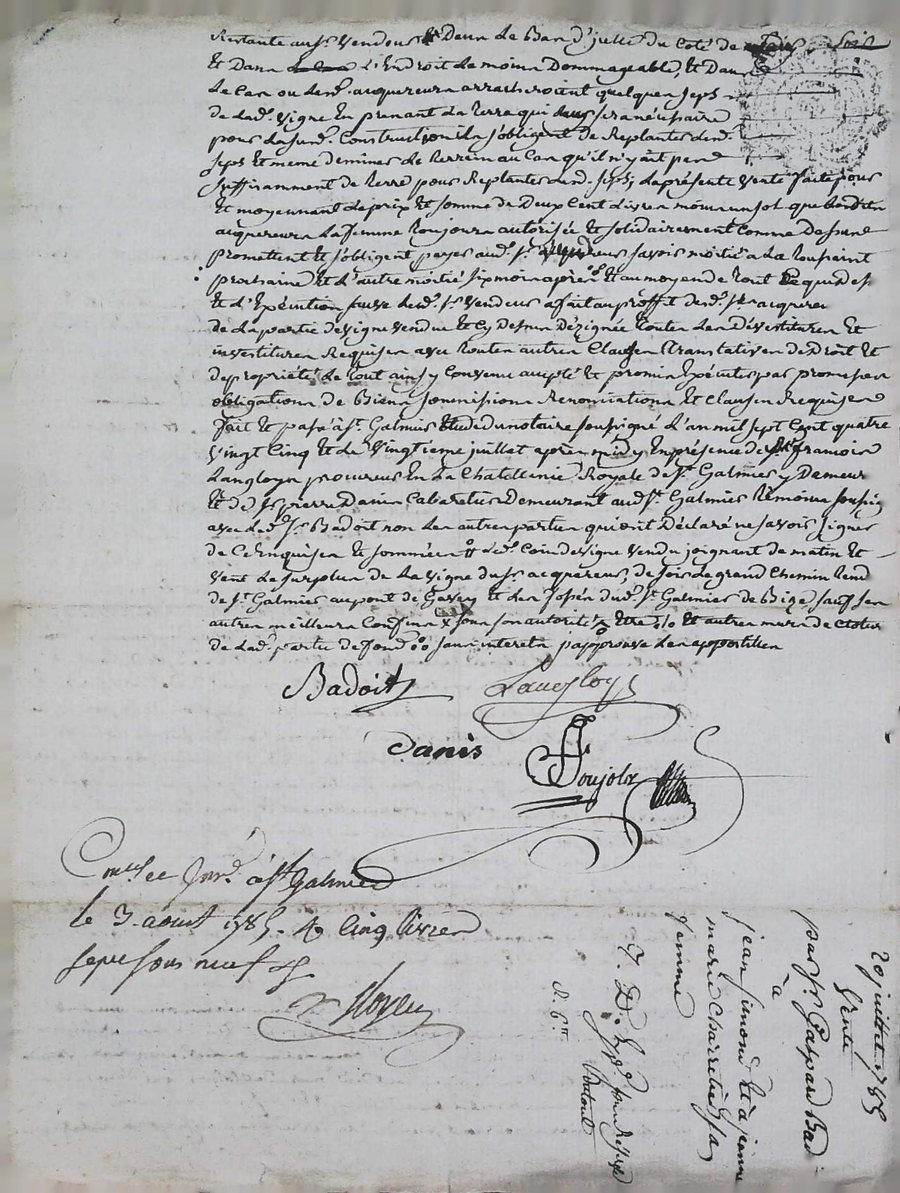 Restante au Sr. Vendeur & Dans Le Bas d'icelle du Coté de soir
Et Dans L'Endroit Le moins Dommageable, Et Dans
Le Cas ou Lesd. acquereurs arracheroient quelques seps
de Lad. vigne En prenant La terre qui Leurs sera nécessaire
pour La susd. Construction ils s'obligent de Replanter Lesd.
seps Et meme de miner Le terrein au Cas qu'il n'y ait pas
suffisamment de terre pour Replanter Lesd. seps; La présente vente faite pour
Et moyennant Le prix Et somme de Deux Cent Livres moins un sol que Lesdits
acquereurs La femme toujours autorisée Et solidairement Comme Dessus
promettent Et s'obligent payer aud. Sr. Vendeur savoir moitié a La toussaint
prochaine Et L'autre moitié six mois après Et au moyen de tout Ce que dessus
Et L'Exécution Led. Sr. Vendeur a fait au proffit desd. acquereurs
de La partie de vigne vendue Et Cy Dessus Dézignée toutes Les Dévestitures Et
investitures Requises avec toutes autres Clauses translatives de Droit Et
de propriété Le tout ainsy Convenu accepté Et promis Exécuter par promesses
obligations de Biens soumissions Renonciations Et Clauses Requises
fait Et passé a St. Galmier Etude du notaire soussigné L'an mil sept Cent quatre
vingt Cinq Et Le vingtieme juillet après midy En présence de Me. françois
Langloys procureur En La Chatellenie Royale de St. Galmier y Demeur
Et de Sr. pierre Danis Cabaretier Demeurant aud. St. Galmier temoins soussig
avec Led. Sr. Badoit non Les autres parties qui ont Déclaré ne savoir signer
de Ce Enquises Et sommées Led. Coin de vigne vendu joignant de matin Et
vent Le surplus de La vigne du Sr. acquereur, de soir Le grand Chemin tend
de St. Galmier au pont de Et Les fossés dud. St. Galmier de Bize, sauf ses
autres meilleurs Confins x sous son autorité Et autres murs de Cloture
de Lad. partie de fond sans interets j'approuve Les apostilles
Badoit Langloys
Danis
Poujols
Con.lé et Inv.é à St Galmier
le 3 aout 1785. R. Cinq livres
sept sous neuf d.
20 juillet 1785
Vente
par Sr. Gaspard Bad
à
jean simond Et à jeanne
marie Charretier sa
femme